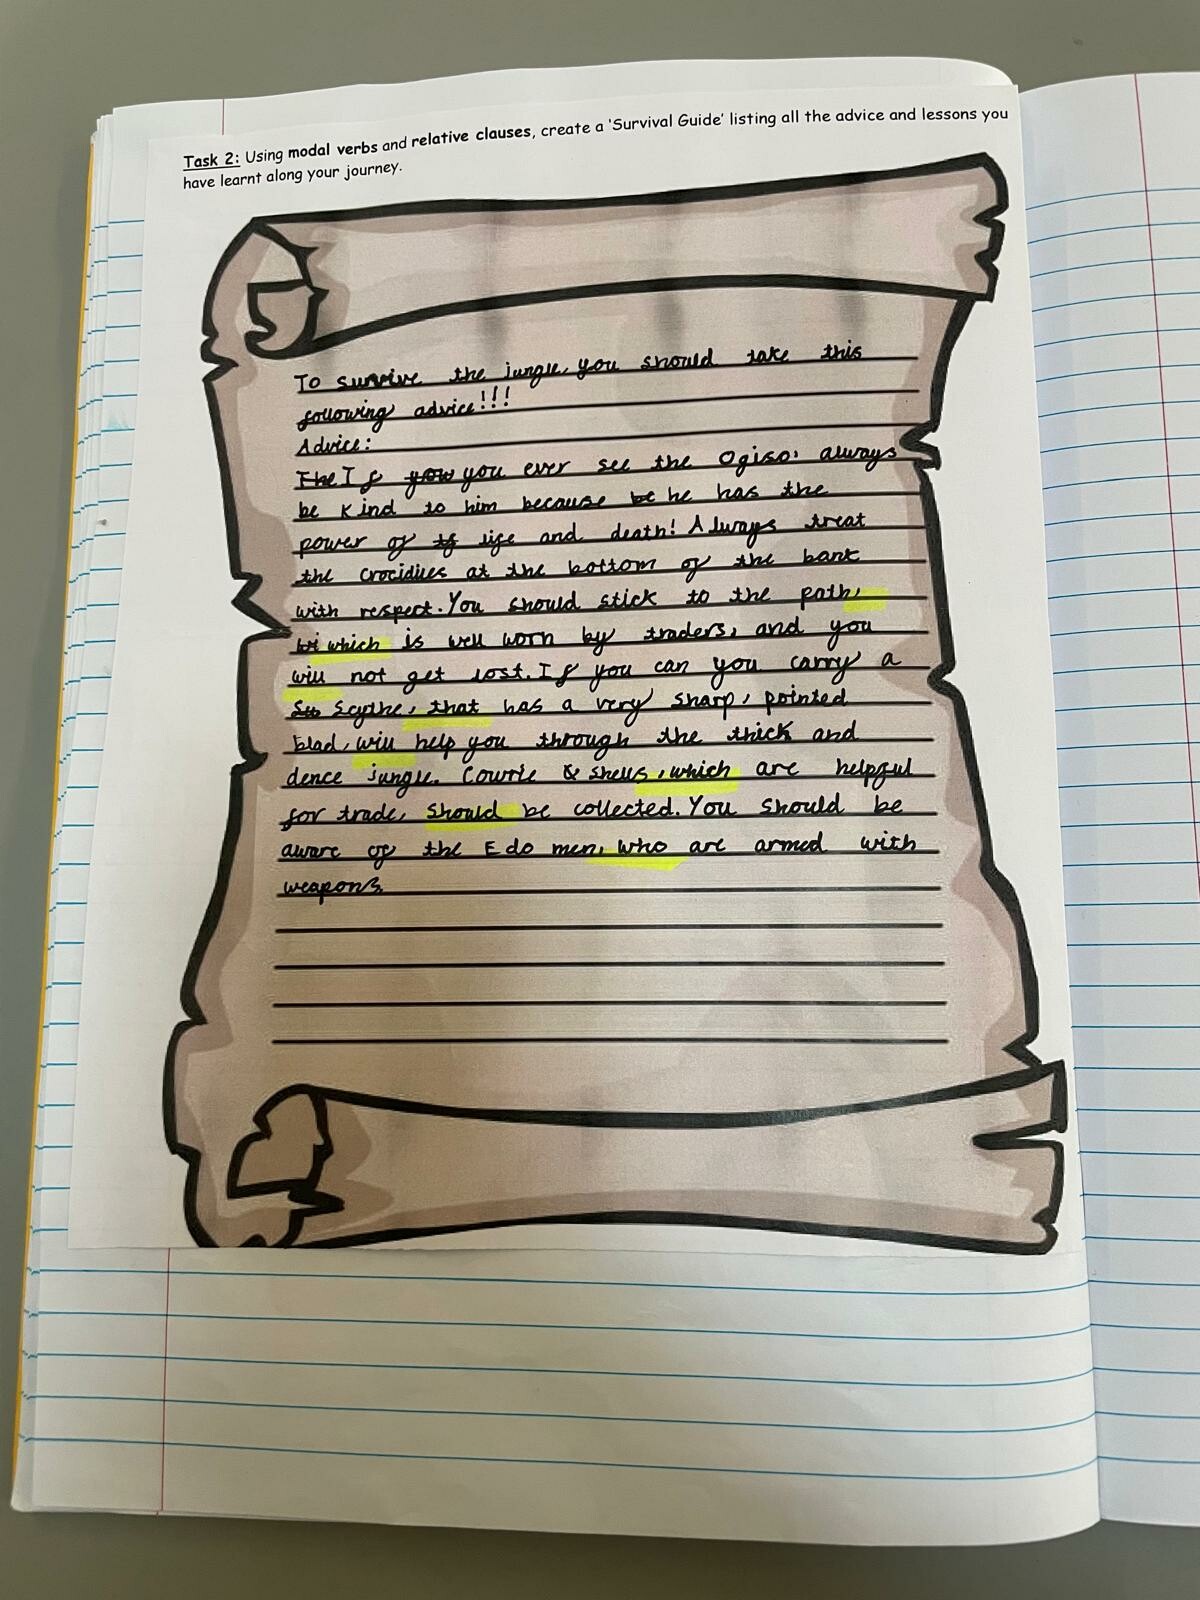 Task 2: Using modal verbs and relative clauses, create a 'Survival Guide' listing all the advice and lessons you
have learnt along your journey.
To survive the jungle, you should take this
following advice!!!
Advice:
The If yow you ever see the Ogiso, always
be kind to him because be he has the
power of tf life and death! Always treat
the crocidiles at the bottom of the bank
with respect. You should stick to the path,
which is well worn by traders, and you
will not get lost. If you can you carry a
Su Scythe, that has a very sharp, pointed
blad, will help you through the thick and
dence jungle. Cowrie & shells, which are helpful
for trade, should be collected. You should be
aware of the Edo men, who are armed with
weapons.